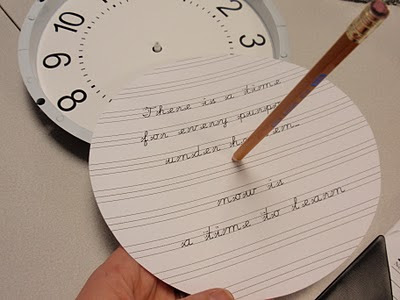 10 2
9 3
8
There is a time
for every
under
now is
a time to learn